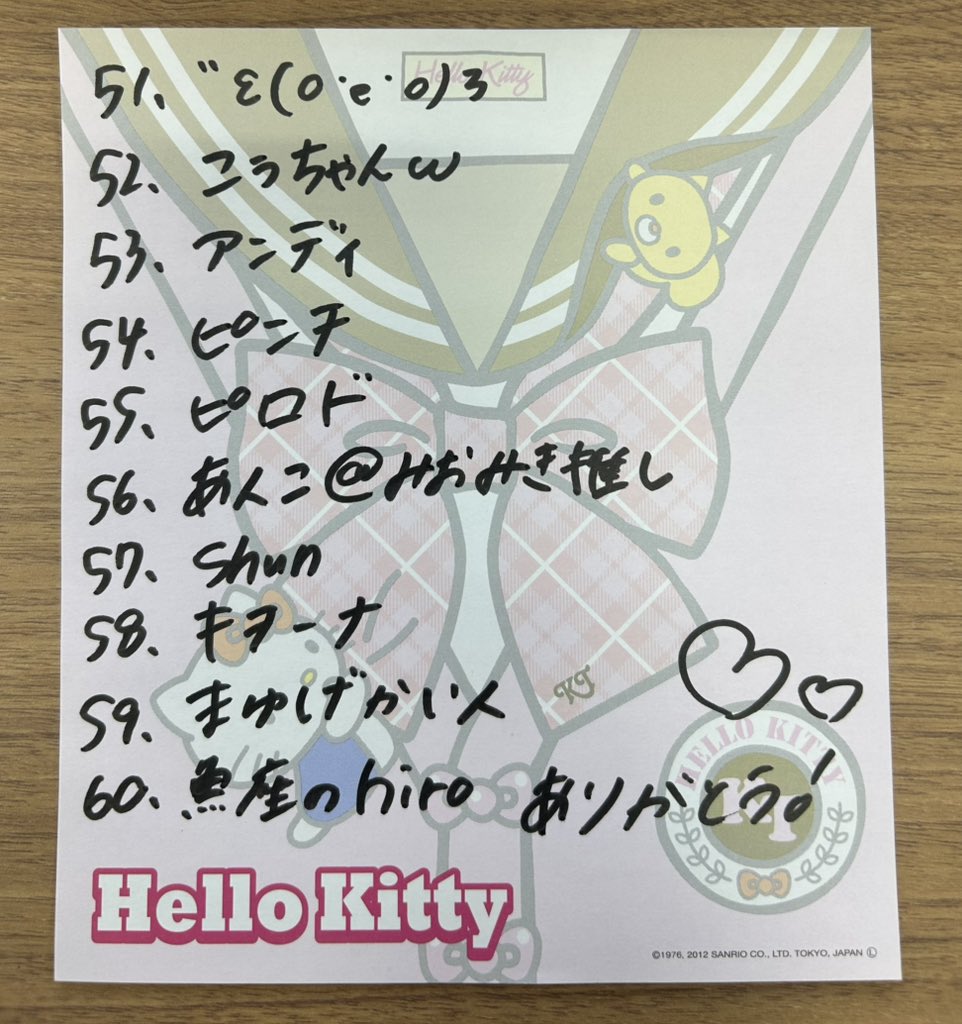 Hello Kitty
51、"ε(о´e`о)з
52、こうちゃんω
53、アンディ
54、ピンチ
55、ピロド
56、あんこ@みおみき推し
57、shun
58、キヲーナ
59、まゆげかい人
60、魚座のhiro ありがとう!
KT
HELLO KITTY
KT
Hello Kitty
©1976, 2012 SANRIO CO., LTD. TOKYO, JAPAN Ⓛ